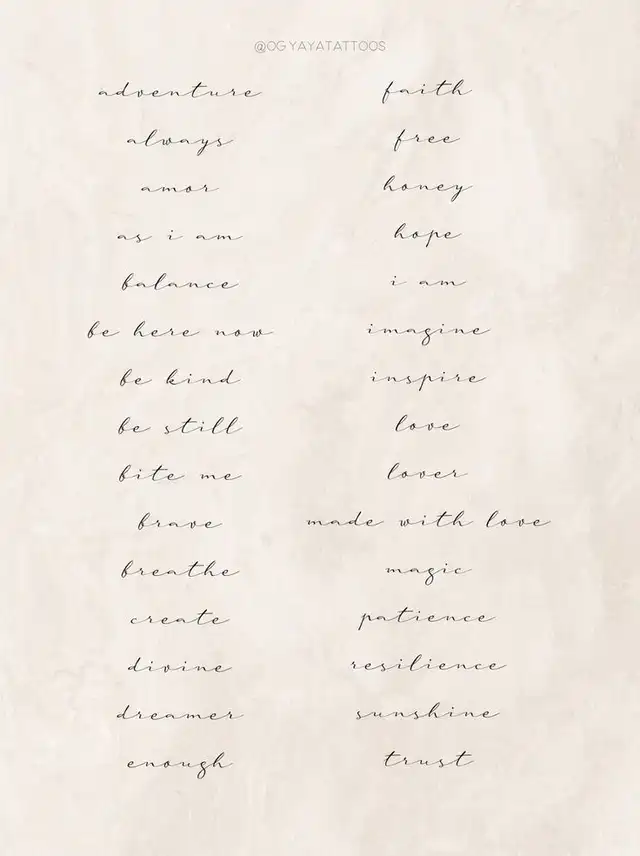 @OGYAYATATTOOS
adventure
always
amor
as i am
balance
be here now
be kind
be still
bite me
brave
breathe
create
divine
dreamer
enough
faith
free
honey
hope
i am
imagine
inspire
love
lover
made with love
magic
patience
resilience
sunshine
trust